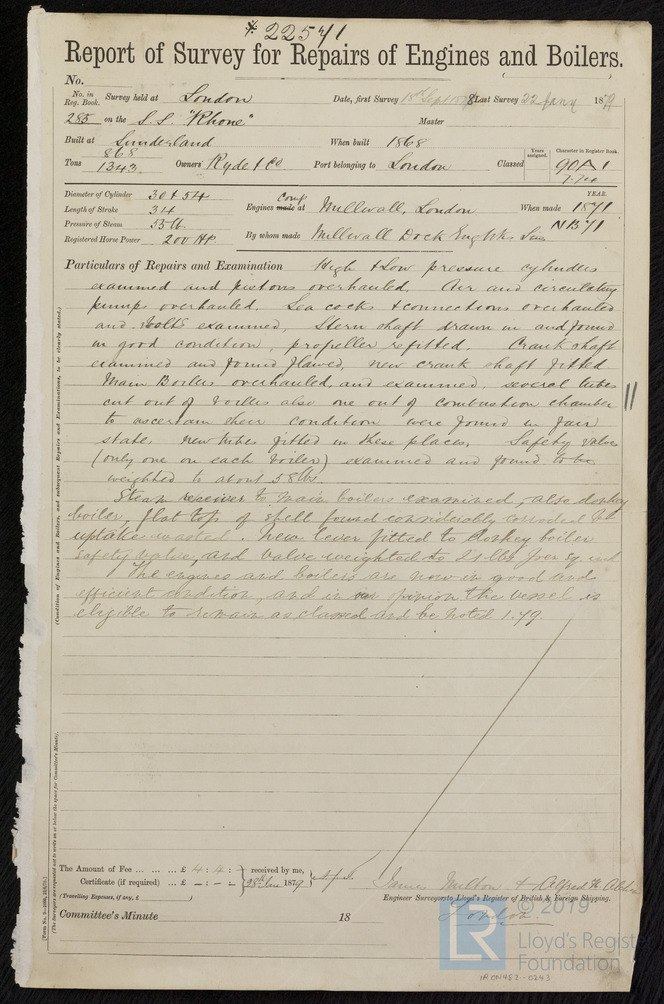 22571
Report of Survey for Repairs of Engines and Boilers.
No.
No. in Reg. Book. Survey held at London Date, first Survey 18th Sept 1878 Last Survey 22 Jany 1879
285 on the S.S. "Rhone" Master
Built at Sunderland When built 1868
Tons 868 1343 Owners Ryde & Co Port belonging to London Classed Years assigned. Character in Register Book. 90A1 7.74
Diameter of Cylinder 30 & 54
Length of Stroke 34
Pressure of Steam 55 lb
Registered Horse Power 200 HP.
Engines made at Comp Millwall, London When made YEAR. 1871
NB 71
By whom made Millwall Dock Eng Wks
Particulars of Repairs and Examination High & Low pressure cylinders
examined and pistons overhauled. Air and circulating
pumps overhauled. Sea cocks & connections overhauled
and bolts examined, Stern shaft drawn in and found
in good condition, propeller refitted. Crank shaft
examined and found flawed, new crank shaft fitted
Main Boilers overhauled, and examined, several tubes
cut out of boilers also one out of combustion chamber
to ascertain their condition were found in fair
state, new tubes fitted in these places. Safety valves
(only one on each boiler) examined and found to be
weighted to about 58 lbs.
Steam receiver to main boilers examined, also donkey
boiler, flat top of shell found considerably corroded &
uptake wasted. New lever fitted to donkey boiler
safety valve, and valve weighted to 21 lbs per sq. inch
The engines and boilers are now in good and
efficient condition, and in our opinion the vessel is
eligible to remain as classed and be noted 1.79
(Condition of Engines and Boilers, and subsequent Repairs and Examinations, to be clearly stated.)
(The Surveyors are requested not to write on or below the space for Committee's Minute).
The Amount of Fee ... ... ... £ 4 : 4 : - received by me,
Certificate (if required) ... £ - : - : - 28th Jan 1879
(Travelling Expenses, if any, £ )
James Milton & Alfred H.
Engineer Surveyors to Lloyd's Register of British & Foreign Shipping.
London.
Committee's Minute 18
© 2019
LR
Lloyd's Register
Foundation
IRON457-0243